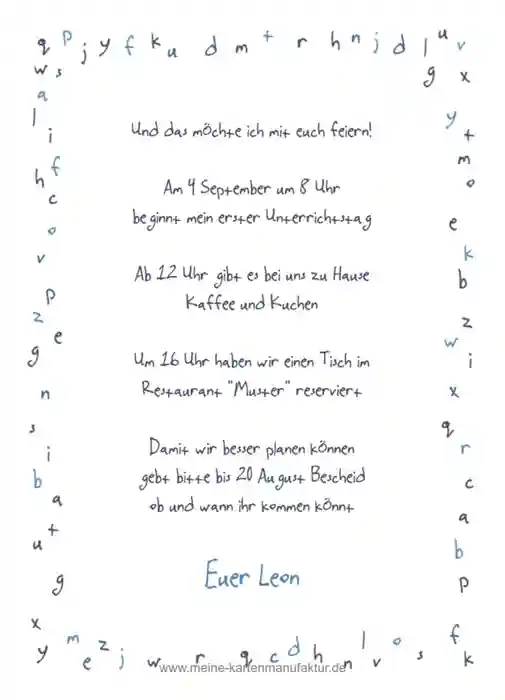 q p j y f k u d m t r h n j d l u v
w s g x
a
l y
i t
f m
h o
c
o e
v k
p b
z z
e w
g i
n x
s q
i r
b c
a a
t b
u p
g
x
y m e z j w r q c d h n l v o s f k
Und das möchte ich mit euch feiern!
Am 4 September um 8 Uhr
beginnt mein erster Unterrichtstag
Ab 12 Uhr gibt es bei uns zu Hause
Kaffee und Kuchen
Um 16 Uhr haben wir einen Tisch im
Restaurant "Muster" reserviert
Damit wir besser planen können
gebt bitte bis 20 August Bescheid
ob und wann ihr kommen könnt
Euer Leon
www.meine-kartenmanufaktur.de